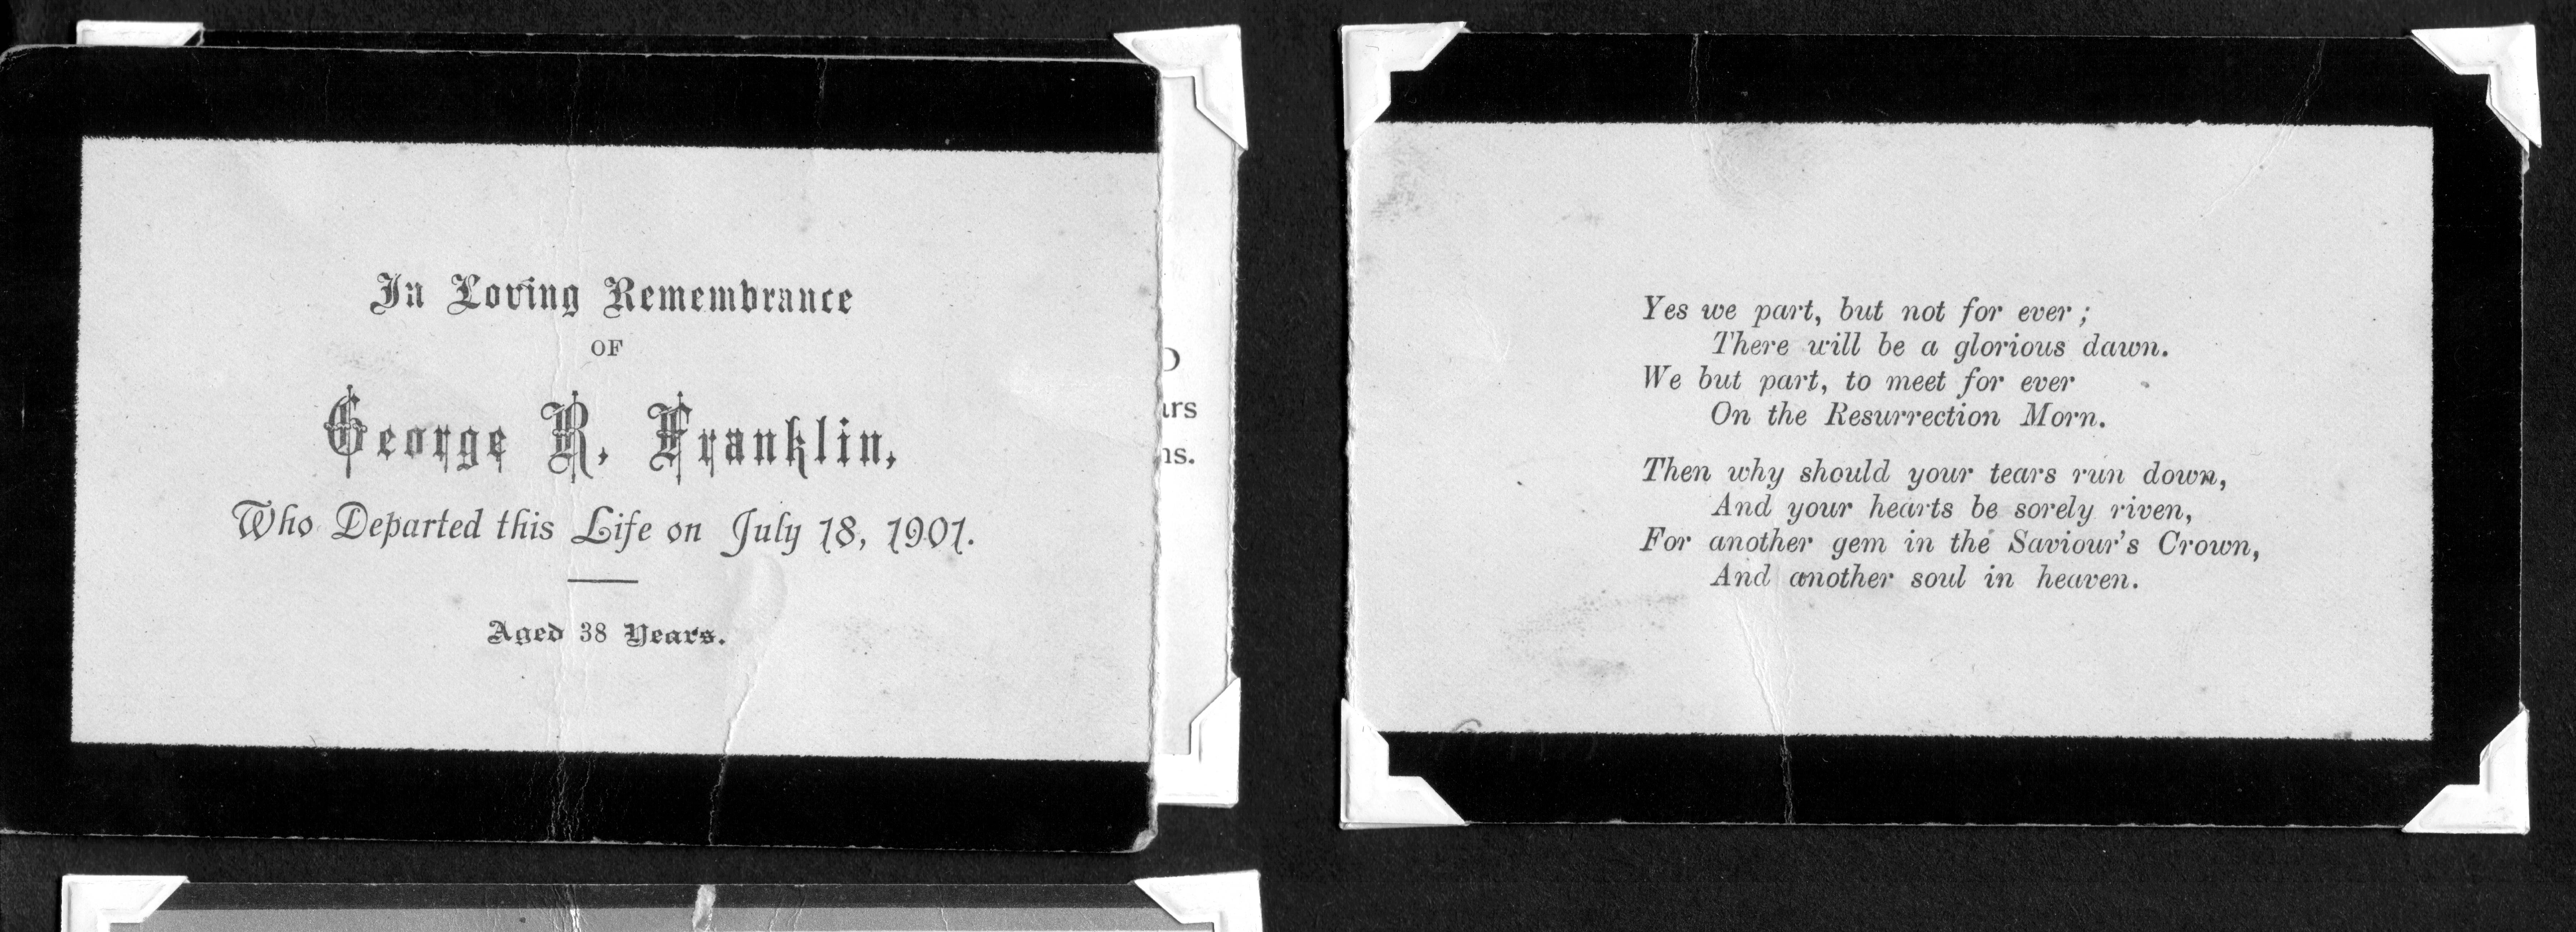 In Loving Remembrance
OF
George R. Franklin,
Who Departed this Life on July 18, 1901.
Aged 38 Years.
Yes we part, but not for ever ;
There will be a glorious dawn.
We but part, to meet for ever
On the Resurrection Morn.
Then why should your tears run down,
And your hearts be sorely riven,
For another gem in the Saviour's Crown,
And another soul in heaven.